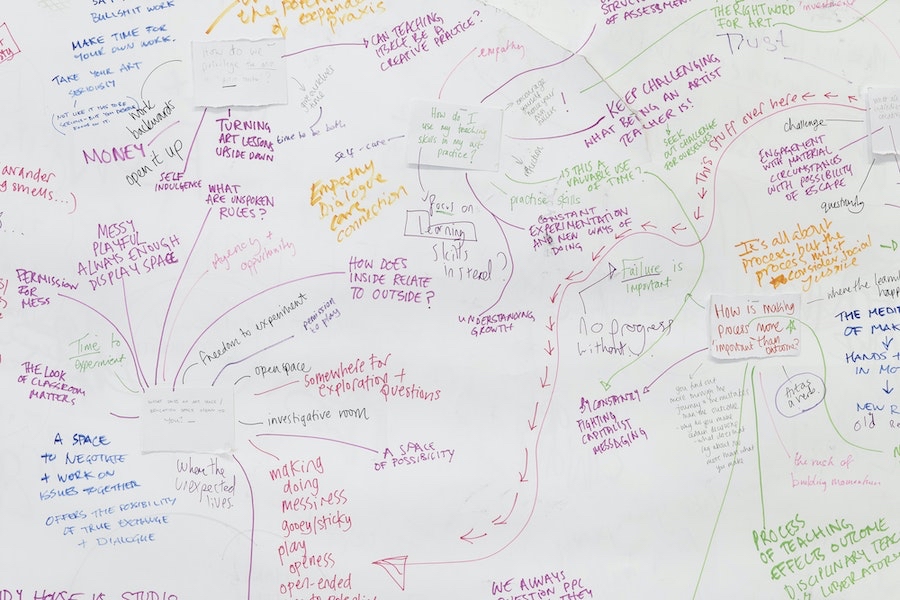 BULLSHIT WORK
MAKE TIME FOR
YOUR OWN WORK.
TAKE YOUR ART
SERIOUSLY
work
backwards
MONEY
open it up
SELF
INDULGENCE
TURNING
ART LESSONS
UPSIDE DOWN
WHAT
ARE UNSPOKEN
RULES?
the
& expanded
praxis
How do we
CAN TEACHING
ITSELF BE A
CREATIVE PRACTICE?
time to be both
empathy
How do I
use my teaching
skills in my art
practice?
self-care
Empathy
Dialogue
care
connection
Focus on
Learning
skills
instead?
STRUCTURE
OF ASSESSMENT
THE RIGHT WORD
FOR ART
Dust
investment
KEEP CHALLENGING
WHAT BEING AN ARTIST
TEACHER IS!
SEEK
OUT CHALLENGE
FOR OURSELVES
This stuff over here
IS THIS A
VALUABLE USE
OF TIME?
practise skills
CONSTANT
EXPERIMENTATION
AND NEW WAYS OF
DOING
challenge
ENGAGEMENT
WITH MATERIAL
CIRCUMSTANCES
WITH POSSIBILITY
OF ESCAPE
questioning
It's all about
process, but the
process must
consider social
justice
where the learning
happens
Failure is
important
no progress
without
UNDERSTANDING
GROWTH
How is making
process more
important than
outcome?
THE MEDIT
OF MAK
HANDS +
IN MOT
NEW R
old Re
Art as
a verb
BY CONSTANTLY
FIGHTING
CAPITALIST
MESSAGING
you find out
more through the
than the outcome
say about you
more than what
you make
building momentum
PROCESS
OF TEACHING
EFFECTS OUTCOME
DISCIPLINARY TEAC
smells...)
MESSY
PLAYFUL
ALWAYS ENOUGH
DISPLAY SPACE
PERMISSION
FOR
MESS
Agency +
opportunity
HOW DOES
INSIDE RELATE
TO OUTSIDE?
Freedom to experiment
permission
to play
Time to
experiment
THE LOOK
OF CLASSROOM
MATTERS
open space
somewhere for
exploration +
questions
investigative room
A SPACE
OF POSSIBILITY
A SPACE
TO NEGOTIATE
+ WORK ON
ISSUES TOGETHER
OFFERS THE POSSIBILITY
OF TRUE EXCHANGE
+ DIALOGUE
Where the
unexpected
lives.
making
doing
messiness
gooey/sticky
play
openness
open-ended
HOUSE IS STUDIO
WE ALWAYS
QUESTION PPL
THEY